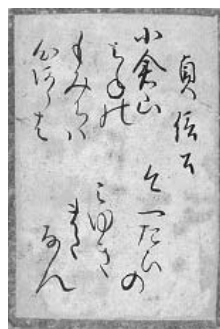 貞信公
小倉山
みねの
もみちは
心あらは
今一たひの
みゆき
また
なん